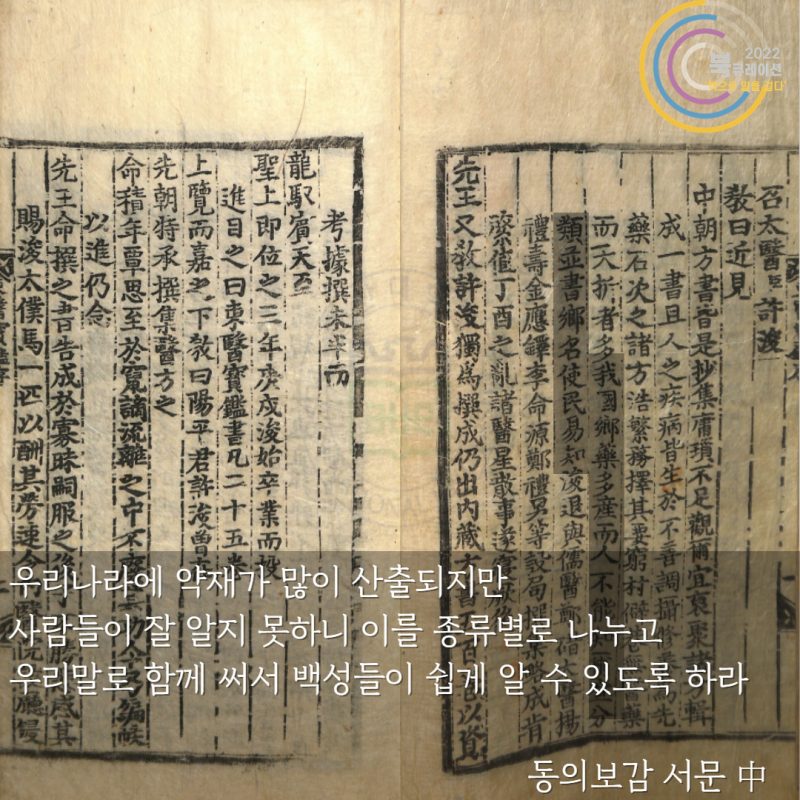 2022
북큐레이션
책으로 말을 걸다
召太醫臣許浚
教曰近見
中朝方書皆是抄集庸瑣不足觀爾宜裒聚諸方輯
成一書且人之疾病皆生於不善調攝脩養爲先
藥石次之諸方浩繁務擇其要窮村僻巷無醫藥
而夭折者多我國鄕藥多産而人不能知爾宜分
類並書鄕名使民易知浚退與儒醫鄭碏太醫楊
禮壽金應鐸李命源鄭禮男等設局撰集略成肯
綮値丁酉之亂諸醫星散事遂寢厥後
先王又敎許浚獨爲撰成仍出內藏方書五百卷以資
考據撰未半而
龍馭賓天至
聖上即位之三年庚戌浚始卒業而投
進目之曰東醫寶鑑書凡二十五卷
上覽而嘉之下敎曰陽平君許浚曾
先朝特承撰集醫方之
命積年覃思至於竄謫流離之中不廢其功今乃編帙
以進仍念
先王命撰之書告成於寡昧嗣服之後予不勝悲感其
賜浚太僕馬一匹以酬其勞速令內醫院設廳鋟
우리나라에 약재가 많이 산출되지만
사람들이 잘 알지 못하니 이를 종류별로 나누고
우리말로 함께 써서 백성들이 쉽게 알 수 있도록 하라
동의보감 서문 中